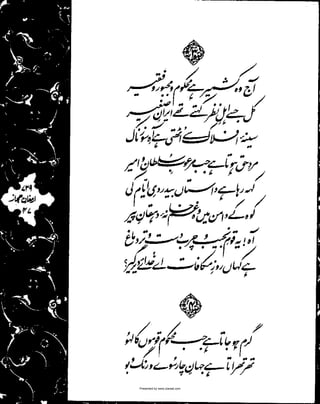 آج وہ کشمیر ہے محکوم و مجبور و فقیر
کل جسے اہل نظر کہتے تھے ایران صغیر
سینۂ افلاک سے اٹھتی ہے آہ سوز ناک
مرد حق ہوتا ہے جب مرعوب سلطان و امیر
کہہ رہا ہے داستاں بیدردی ایام کی
کوہ کے دامن میں وہ غم خانۂ دہقان پیر
آہ! یہ قوم نجیب و چرب دست و تر دماغ
ہے کہاں روز مکافات اے خدائے دیر گیر؟
گرم ہو جاتا ہے جب محکوم قوموں کا لہو
تھرتھراتا ہے جہان چار سوے و رنگ و بو
ارمغان حجاز
Presented by www.ziaraat.com